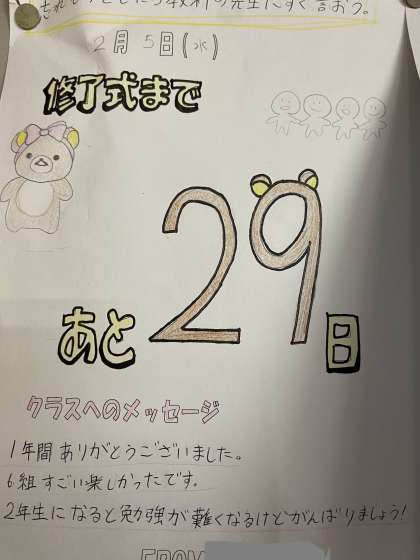 2月5日(水)
修了式まで
あと29日
クラスへのメッセージ
1年間ありがとうございました。
6組すごい楽しかったです。
2年生になると勉強が難くなるけどがんばりましょう!
FROM